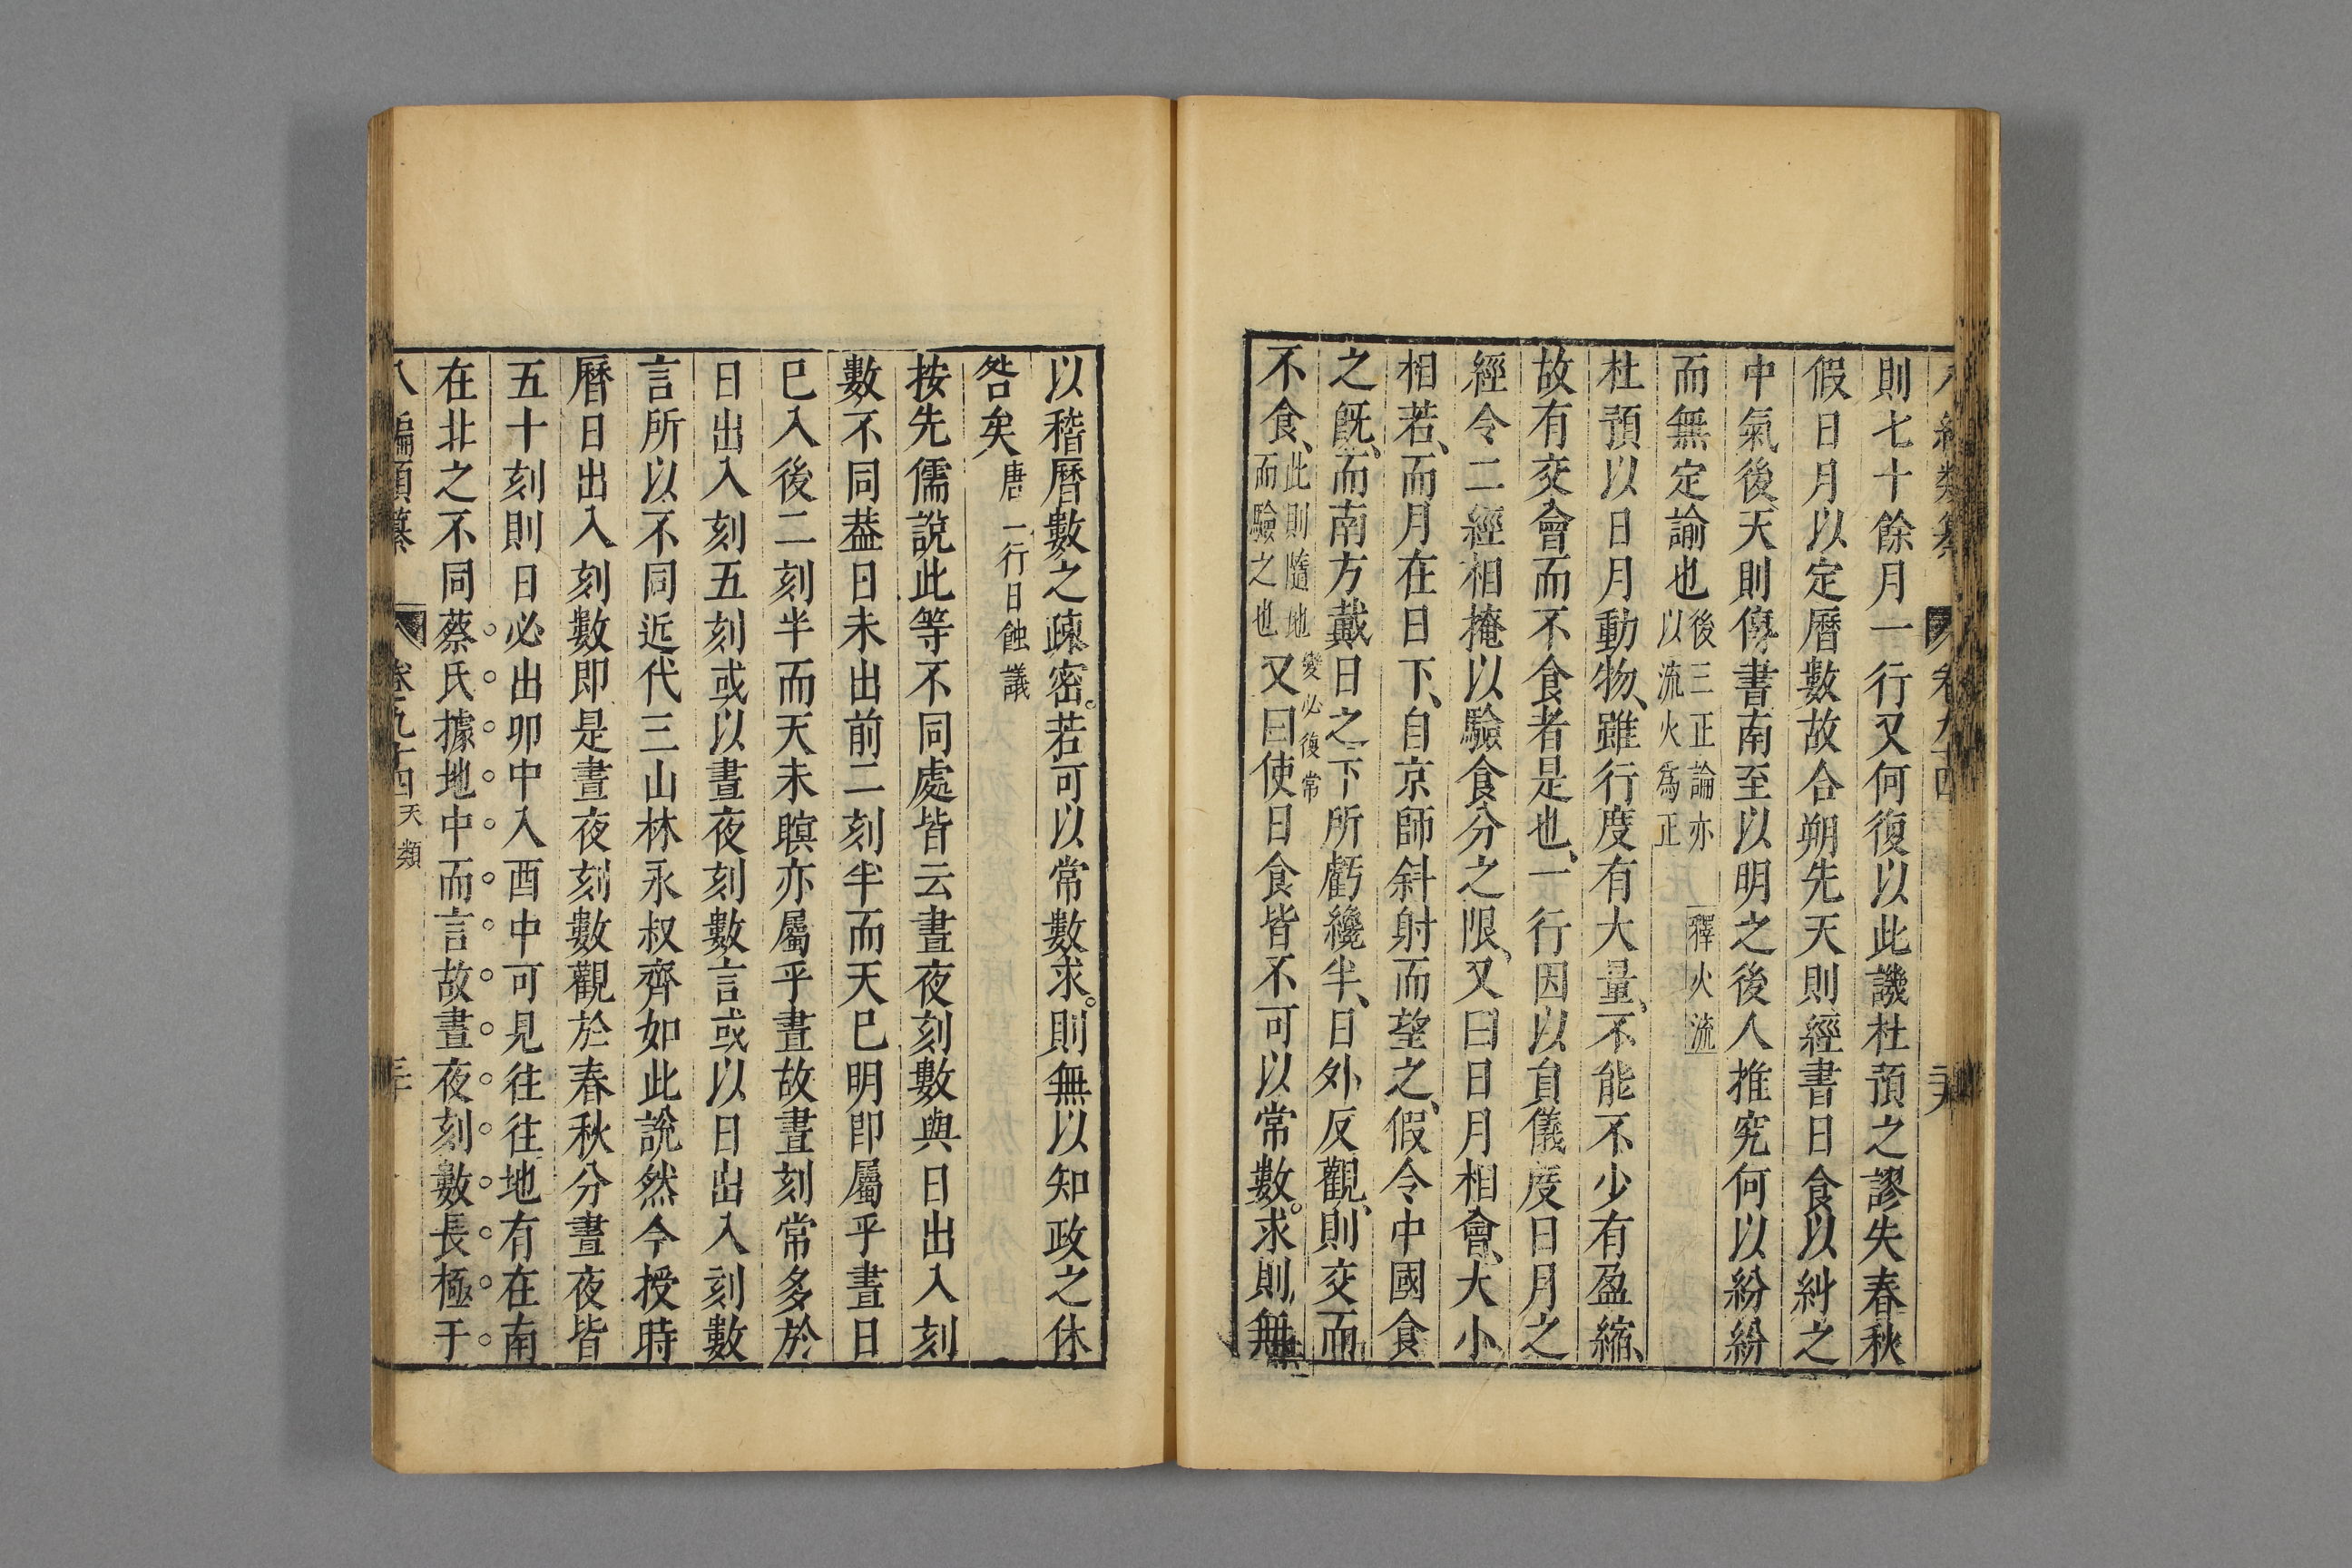 則七十餘月一行又何復以此譏杜預之謬失春秋
假日月以定曆數故合朔先天則經書日食以糾之
中氣後天則傳書南至以明之後人推究何以紛紛
而無定諭也後三正論亦以流火爲正 釋火流
杜預以日月動物、雖行度有大量、不能不少有盈縮、
故有交會而不食者是也、一行因以負儀度日月之
經令二經相掩以驗食分之限、又曰日月相會、大小
相若、而月在日下、自京師斜射而望之、假令中國食
之既、而南方戴日之下所虧纔半、日外反觀、則交而
不食、此則隨地而驗之也變必復常又曰使日食皆不可以常數。求則無
以稽曆數之疎密。若可以常數求。則無以知政之休
咎矣唐一行日蝕議
按先儒說此等不同處皆云晝夜刻數與日出入刻
數不同葢日未出前二刻半而天已明即屬乎晝日
已入後二刻半而天未瞑亦屬乎晝故晝刻常多於
日出入刻五刻或以晝夜刻數言或以日出入刻數
言所以不同近代三山林永叔齊如此說然今授時
曆日出入刻數即是晝夜刻數觀於春秋分晝夜皆
五十刻則日必出卯中入酉中可見往往地有在南
在北之不同蔡氏據地中而言故晝夜刻數長極于
八編類纂 卷九十四 天類